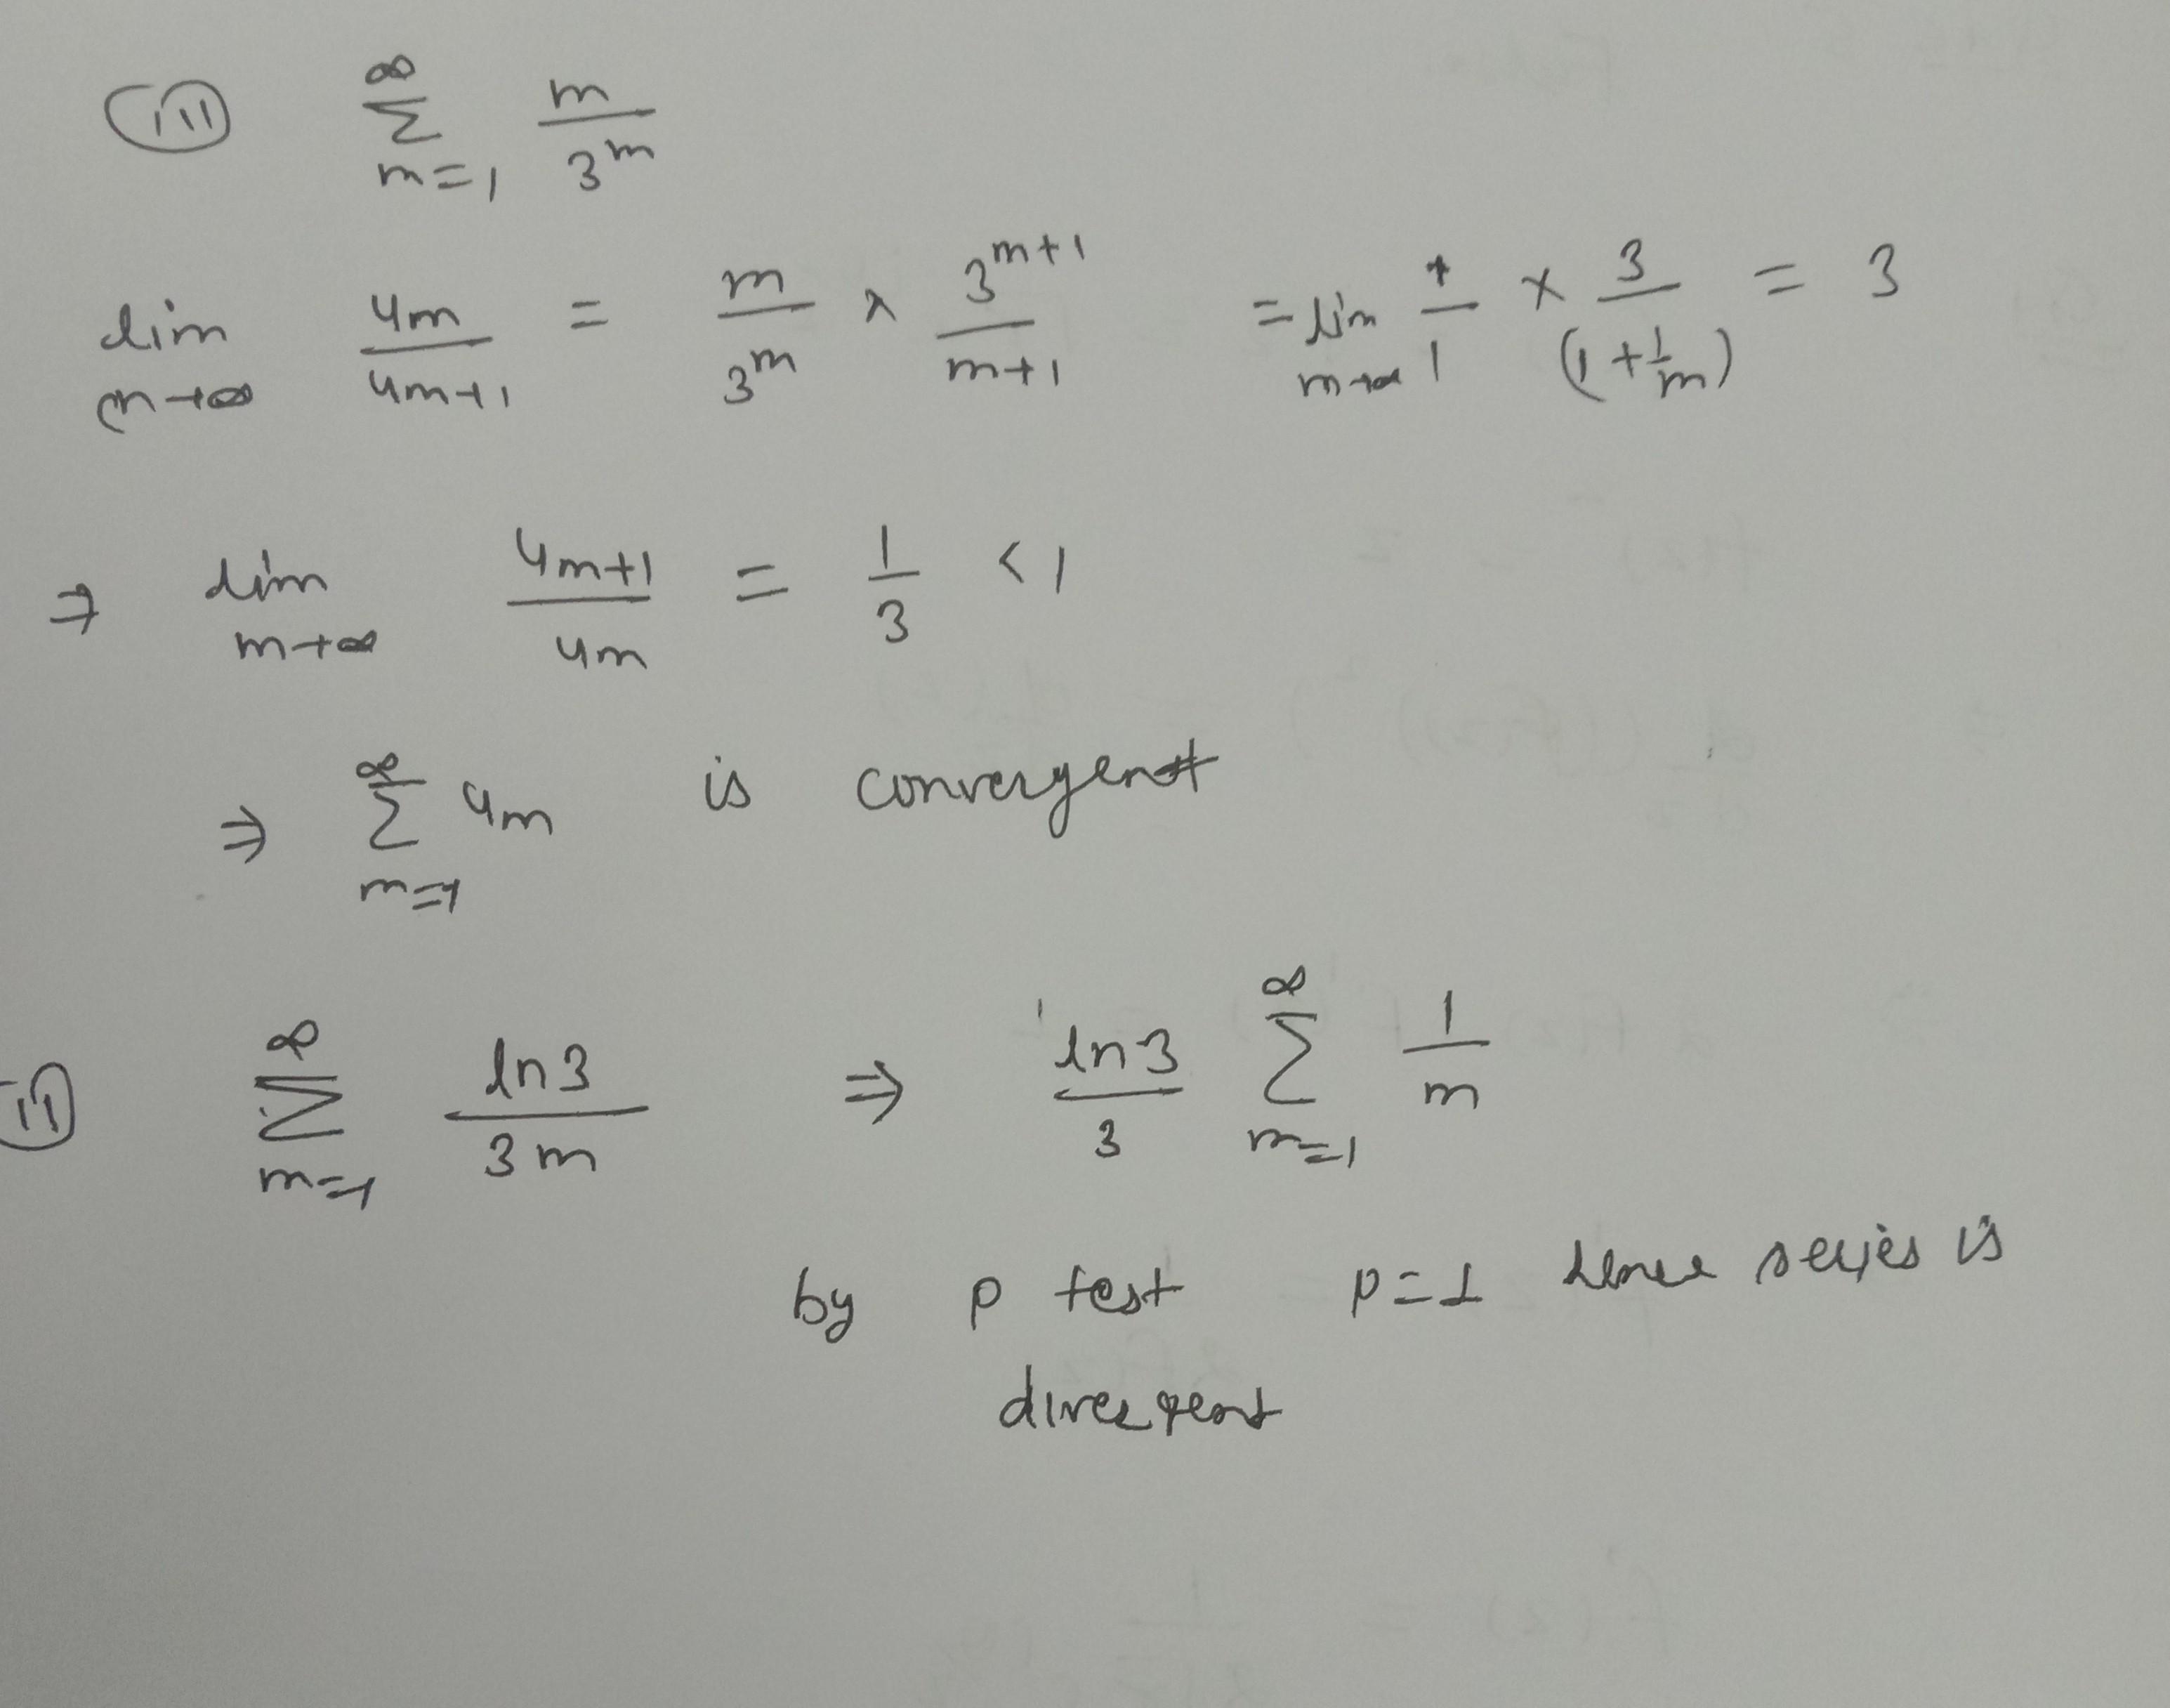 (iii) ∞ Σ m=1 m/3^m
lim m→∞ um/um+1 = m/3^m × 3^m+1/m+1 = lim m→∞ 1/1 × 3/(1+1/m) = 3
⇒ lim m→∞ um+1/um = 1/3 < 1
⇒ ∞ Σ m=1 um is convergent
(ii) ∞ Σ m=1 ln3/3m ⇒ ln3/3 ∞ Σ m=1 1/m
by p test p=1 hence series is
divergent